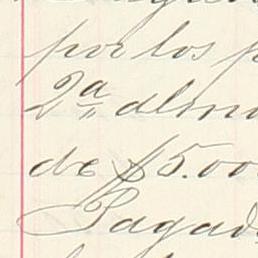 por los
2ª almo
de $5.000
Pagad